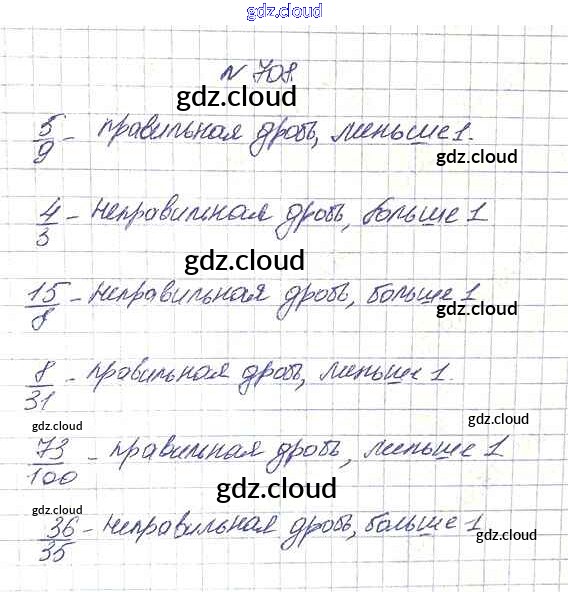 gdz.cloud
gdz.cloud
N 708.
gdz.cloud
5/9 - правильная дробь, меньше 1.
gdz.cloud
4/3 - неправильная дробь, больше 1
gdz.cloud
15/8 - неправильная дробь, больше 1
gdz.cloud
8/31 - правильная дробь, меньше 1.
gdz.cloud
gdz.cloud
73/100 - правильная дробь, меньше 1
gdz.cloud
gdz.cloud
36/35 - неправильная дробь, больше 1
gdz.cloud